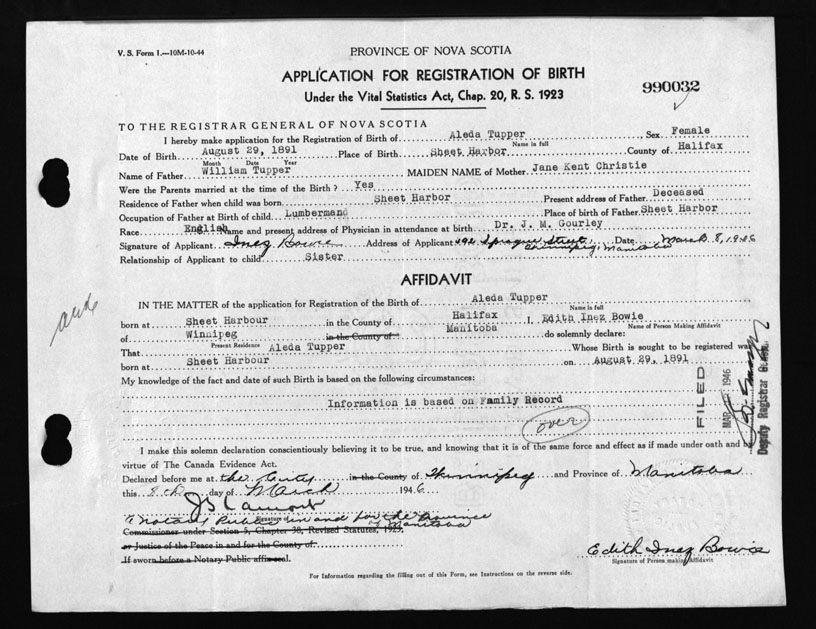 V. S. Form 1.—10M-10-44
PROVINCE OF NOVA SCOTIA
APPLICATION FOR REGISTRATION OF BIRTH
Under the Vital Statistics Act, Chap. 20, R. S. 1923
990032
TO THE REGISTRAR GENERAL OF NOVA SCOTIA
I hereby make application for the Registration of Birth of Aleda Tupper Sex Female
Name in full
Date of Birth August 29, 1891 Place of Birth Sheet Harbor County of Halifax
Month Date Year
Name of Father William Tupper MAIDEN NAME of Mother Jane Kent Christie
Were the Parents married at the time of the Birth? Yes
Residence of Father when child was born Sheet Harbor Present address of Father Deceased
Occupation of Father at Birth of child Lumberman Place of birth of Father Sheet Harbor
Race English Name and present address of Physician in attendance at birth Dr. J. M. Gourley
Signature of Applicant Inez Bowie Address of Applicant Sprague Street Winnipeg, Manitoba Date March 8, 1946
Relationship of Applicant to child Sister
AFFIDAVIT
IN THE MATTER of the application for Registration of the Birth of Aleda Tupper
Name in full
born at Sheet Harbour in the County of Halifax I, Edith Inez Bowie
Name of Person Making Affidavit
of Winnipeg in the County of Manitoba do solemnly declare:
Present Residence
That Aleda Tupper Whose Birth is sought to be registered was
born at Sheet Harbour on August 29, 1891
My knowledge of the fact and date of such Birth is based on the following circumstances:
Information is based on Family Record
over
FILED
MAR 1946
Deputy Registrar General
I make this solemn declaration conscientiously believing it to be true, and knowing that it is of the same force and effect as if made under oath and by
virtue of The Canada Evidence Act.
Declared before me at the City in the County of Winnipeg and Province of Manitoba
this 8th day of March 1946
J S Lamont
Signature of
A notary Public in and for the Province of Manitoba
Commissioner under Section 5, Chapter 38, Revised Statutes, 1923,
or Justice of the Peace in and for the County of
If sworn before a Notary Public affix seal.
Edith Inez Bowie
Signature of Person making Affidavit
For Information regarding the filling out of this Form, see Instructions on the reverse side.